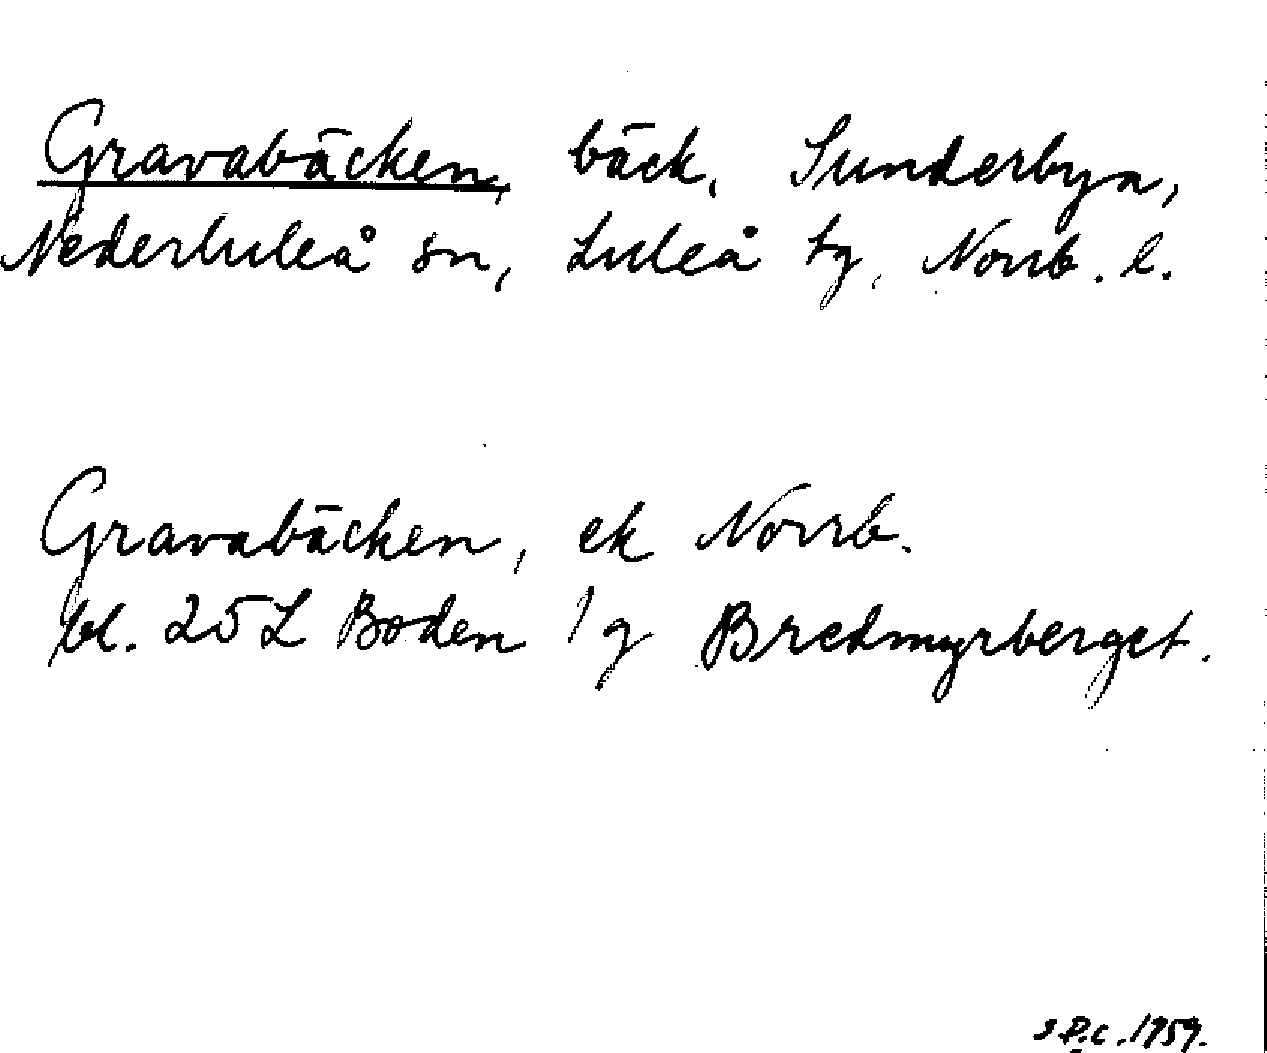 Gravabäcken, bäck, Sunderbyn,
Nederluleå sn, Luleå tg, Norrb. l.
Gravabäcken, ek Norrb.
bl. 25 L Boden 1 g Bredmyrberget.
1959.